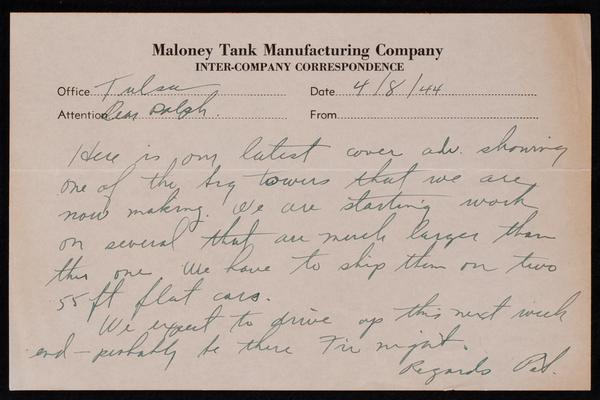 Maloney Tank Manufacturing Company
INTER-COMPANY CORRESPONDENCE
Office Tulsa Date 4/8/44
Attention Dear Ralph. From
Here is our latest cover adv. showing
one of the big towers that we are
now making. We are starting work
on several that are much larger than
this one We have to ship them on two
55 ft flat cars.
We expect to drive up this next week
end - probably be there Fri night.
Regards